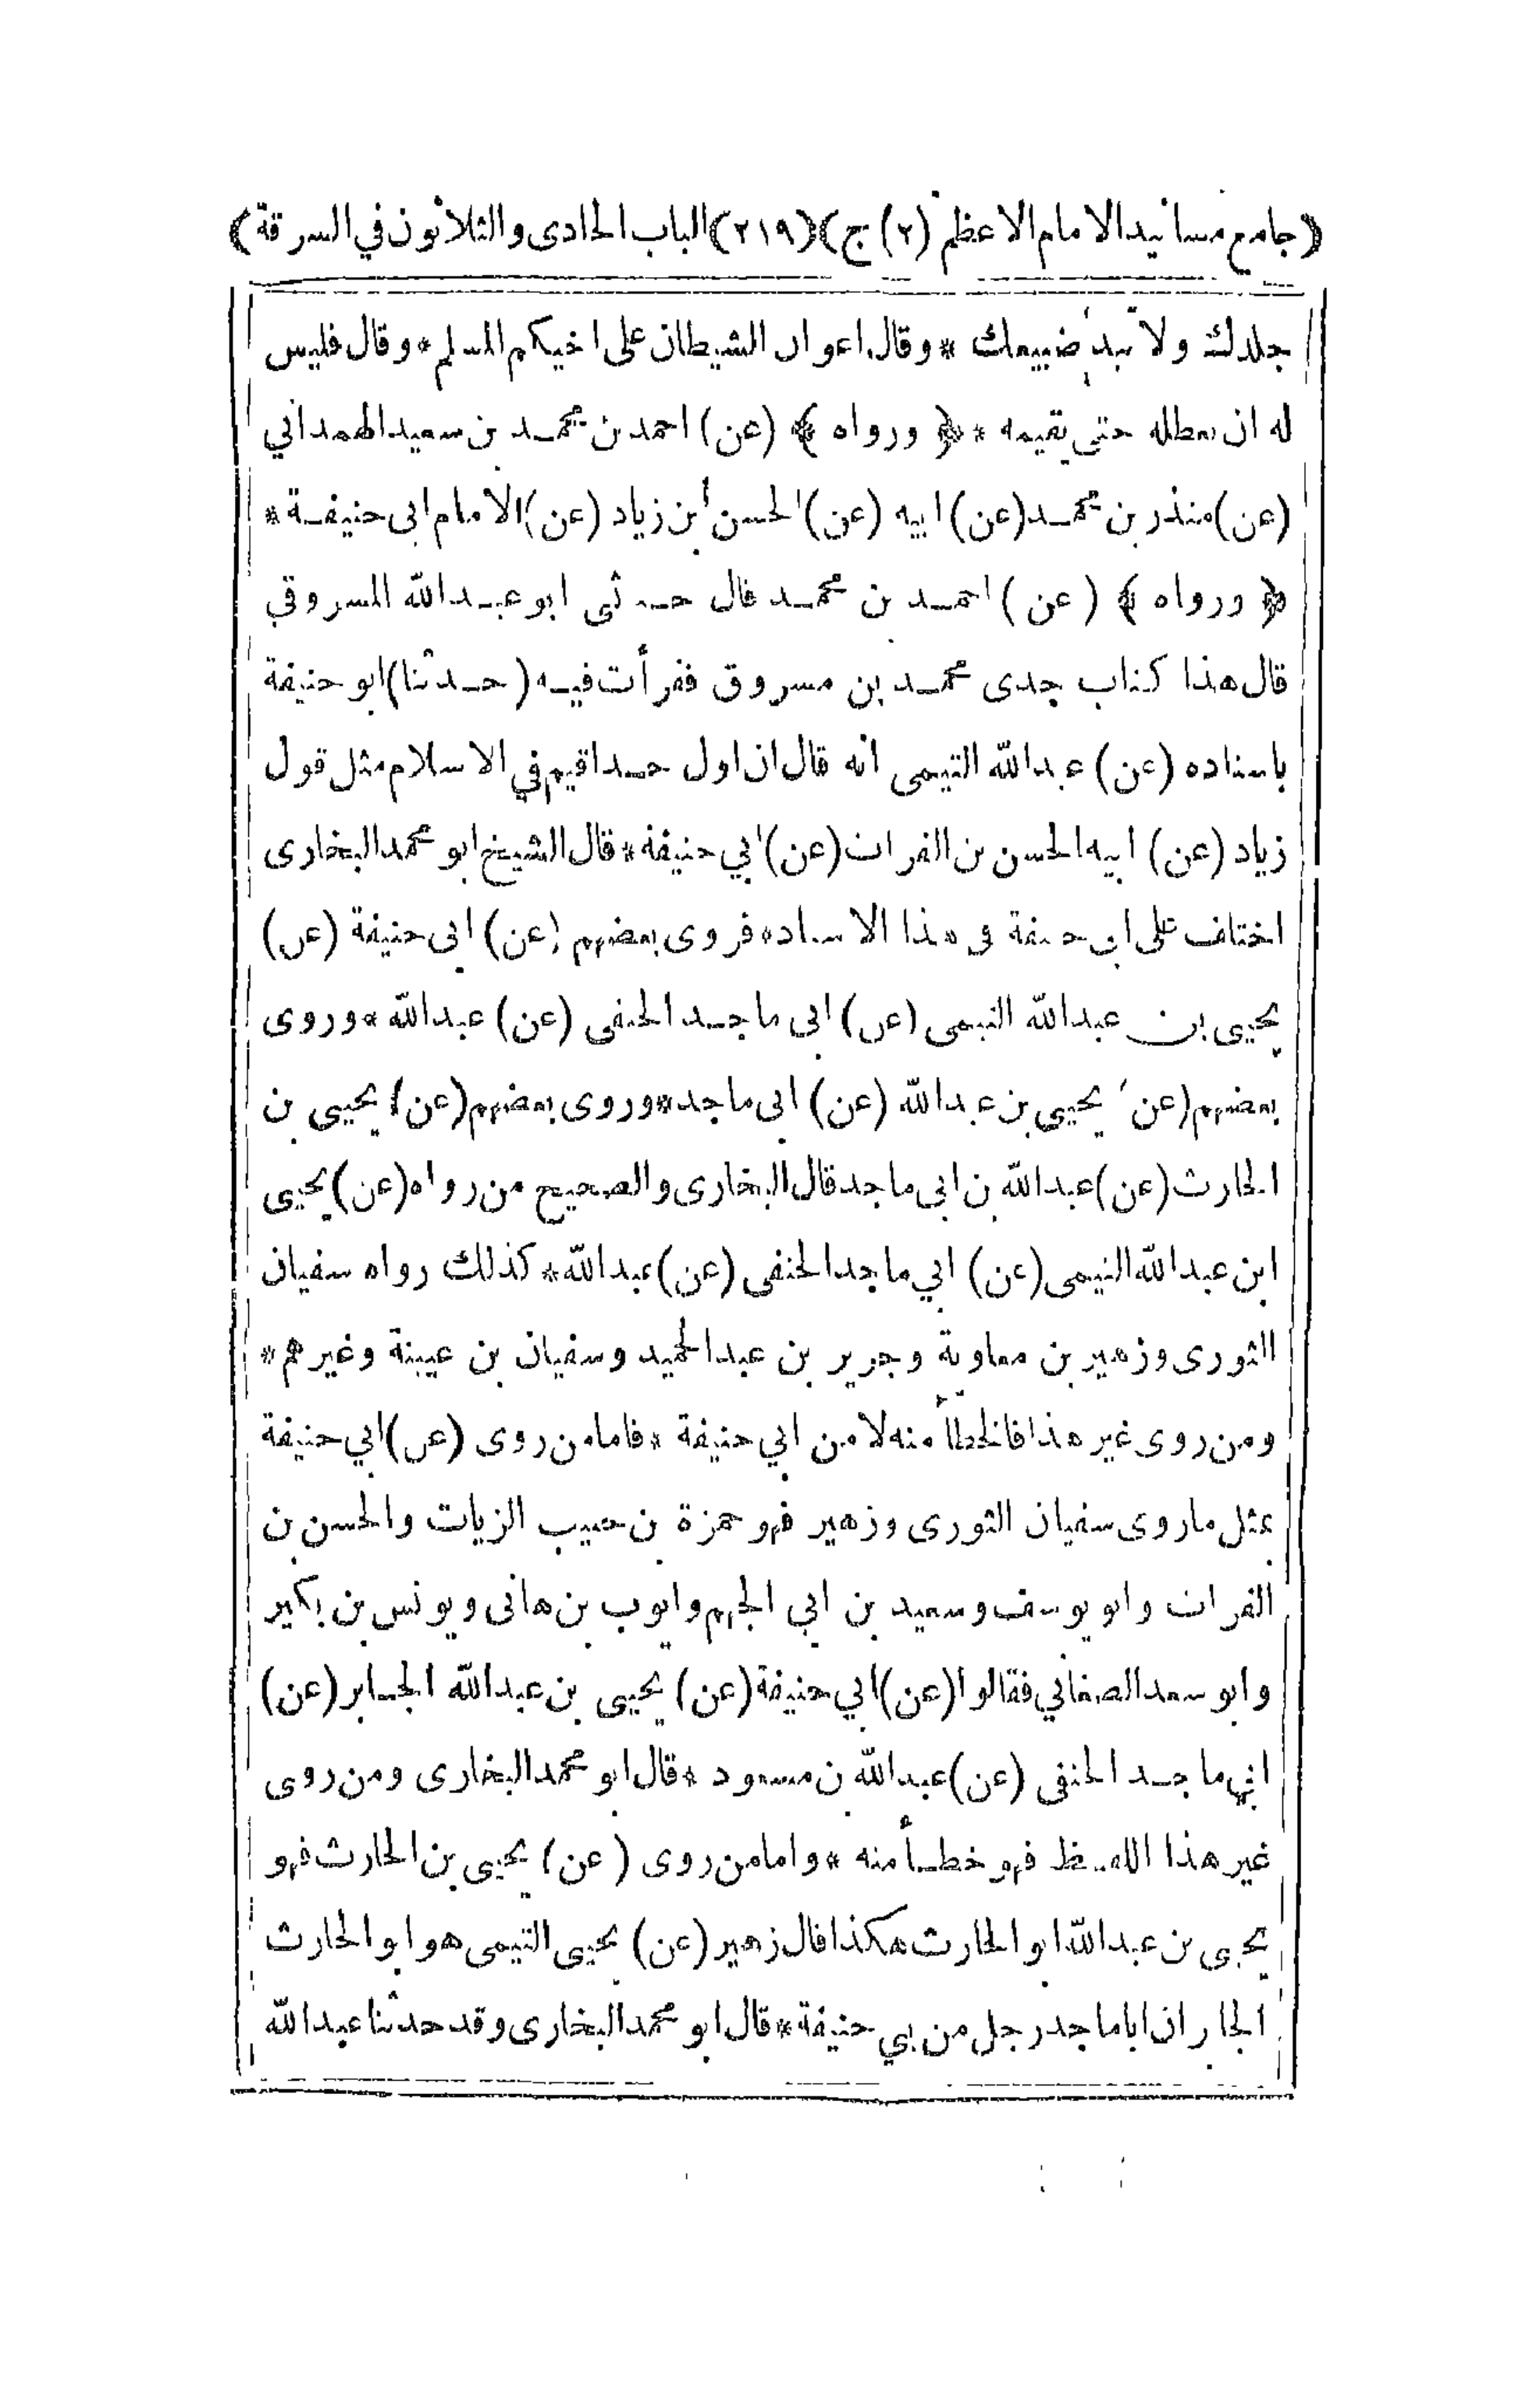 (جامع مسانيد الامام الاعظم (٢) ج) (٢١٩) (الباب الحادى والثلاثون في السرقة)
جلدك ولا تبد ضبيعك * وقال اعوان الشيطان على اخيكم المسلم * وقال فليس
له ان يعطله حتى يقيمه * ﴿ ورواه ﴾ (عن) احمد بن محمد بن سعيد الهمداني
(عن) منذر بن محمد (عن) ابيه (عن) الحسن ابن زياد (عن) الامام ابى حنيفة *
﴿ ورواه ﴾ (عن) احمد بن محمد قال حدثنى ابو عبد الله المسروقي
قال هذا كتاب جدى محمد بن مسروق فقرأت فيه (حدثنا) ابو حنيفة
باسناده (عن) عبد الله التيمى انه قال ان اول حد اقيم في الاسلام مثل قول
زياد (عن) ابيه الحسن بن الفرات (عن) ابي حنيفة * قال الشيخ ابو محمد البخارى
اختلف على ابى حنيفة فى هذا الاسناد * فروى بعضهم (عن) ابى حنيفة (عن)
يحيى بن عبد الله التيمى (عن) ابى ماجد الحنفى (عن) عبد الله * وروى
بعضهم (عن) يحيى بن عبد الله (عن) ابى ماجد * وروى بعضهم (عن) يحيى بن
الحارث (عن) عبد الله بن ابى ماجد قال البخارى والصحيح من رواه (عن) يحيى
ابن عبد الله التيمى (عن) ابي ماجد الحنفى (عن) عبد الله * كذلك رواه سفيان
الثورى وزهير بن معاوية وجرير بن عبد الحميد وسفيان بن عيينة وغيرهم *
ومن روى غير هذا فالخطأ منه لا من ابي حنيفة * فاما من روى (عن) ابي حنيفة
بمثل ما روى سفيان الثورى وزهير فهو حمزة بن حبيب الزيات والحسن بن
الفرات وابو يوسف وسعيد بن ابي الجهم وايوب بن هانى ويونس بن بكير
وابو سعد الصغاني فقالوا (عن) ابي حنيفة (عن) يحيى بن عبد الله الجابر (عن)
ابي ماجد الحنفى (عن) عبد الله بن مسعود * قال ابو محمد البخارى ومن روى
غير هذا اللفظ فهو خطأ منه * واما من روى (عن) يحيى بن الحارث فهو
يحيى بن عبد الله ابو الحارث هكذا قال زهير (عن) يحيى التيمى هو ابو الحارث
الجابر ان ابا ماجد رجل من بني حنيفة * قال ابو محمد البخارى وقد حدثنا عبد الله